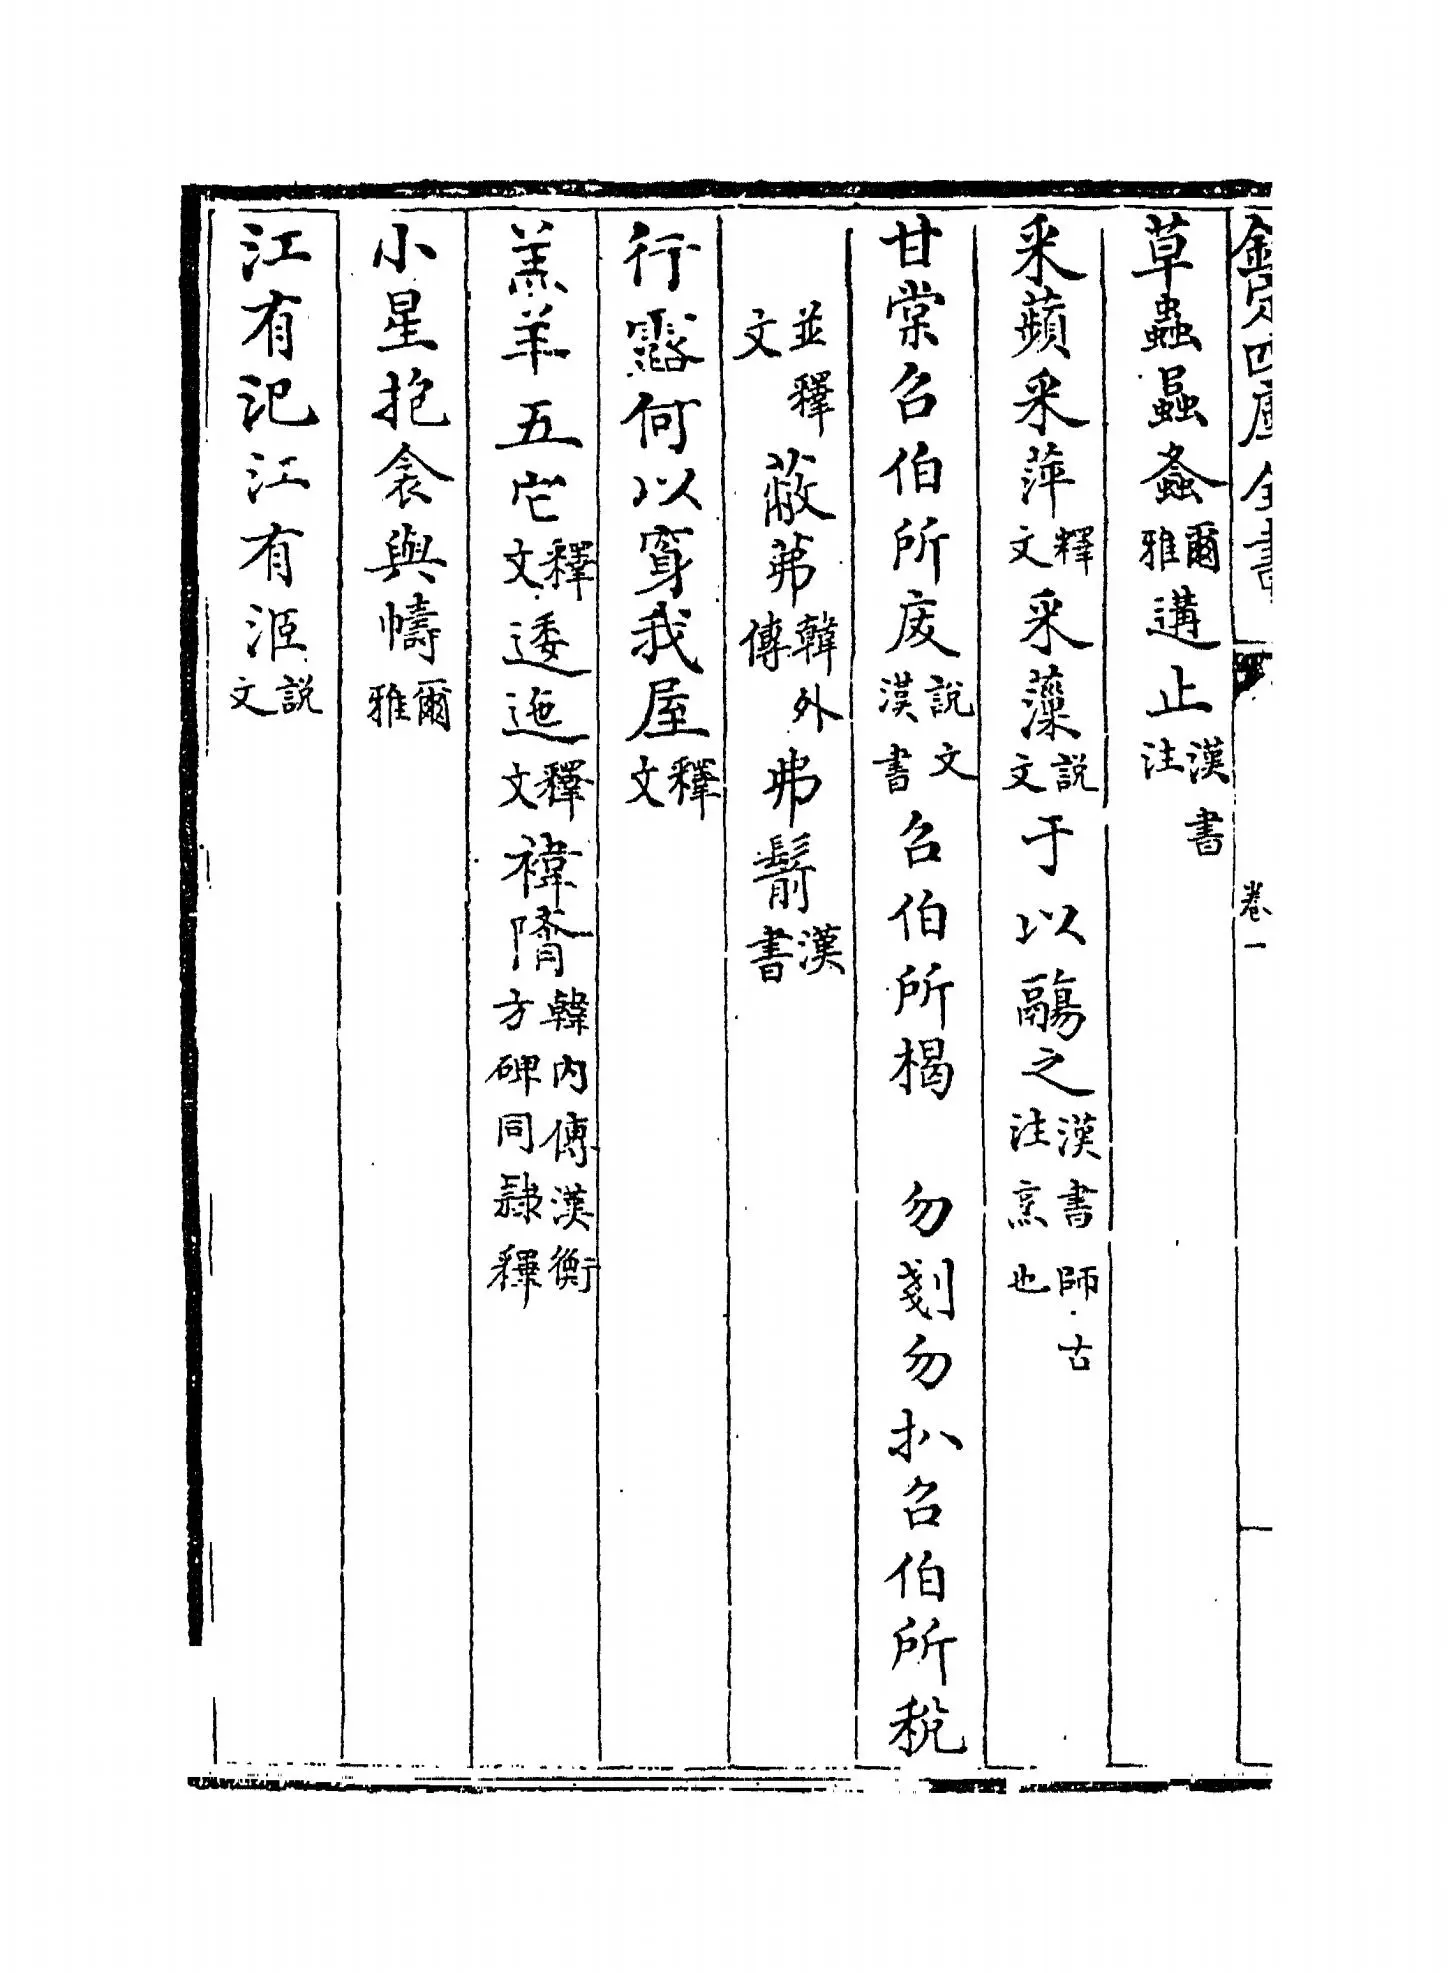 欽定四庫全書 卷一
草蟲蟲螽爾雅遘止漢書注
采蘋采萍釋文采藻說文于以鬺之漢書師古注烹也
甘棠召伯所废說文漢書召伯所楬 勿剗勿扒召伯所稅
並釋文蔽茀韓外傳茀鬋漢書
行露何以穿我屋釋文
羔羊五它釋文逶迤釋文禕隋韓內傳漢衡方碑同隸釋
小星抱衾與幬爾雅
江有汜江有洍說文